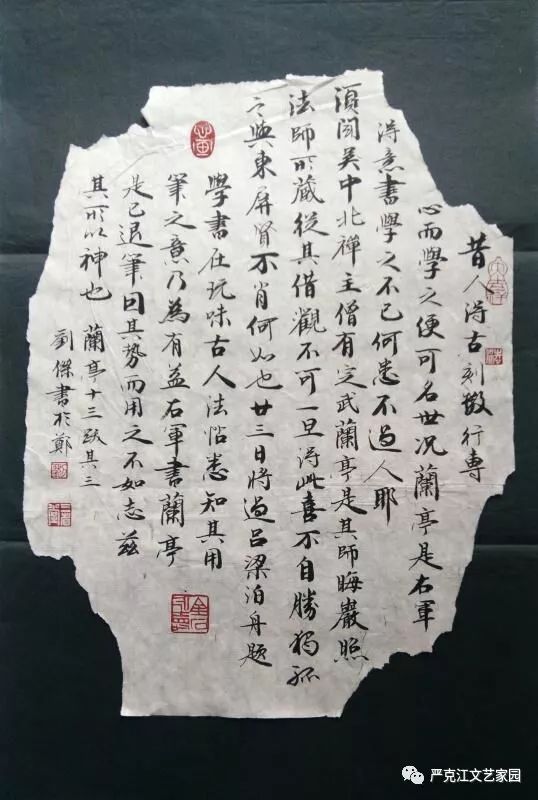 昔人得古刻數行專
心而學之便可名世況蘭亭是右軍
得意書學之不已何患不過人耶
頃聞吳中北禪主僧有定武蘭亭是其師晦巖照
法師所藏從其借觀不可一旦得此喜不自勝獨孤
之與東屏賢不肖何如也廿三日將過呂梁泊舟題
學書在玩味古人法帖悉知其用
筆之意乃為有益右軍書蘭亭
是已退筆因其勢而用之不如志茲
其所以神也 蘭亭十三跋其三
劉傑書於鄭
严克江文艺家园